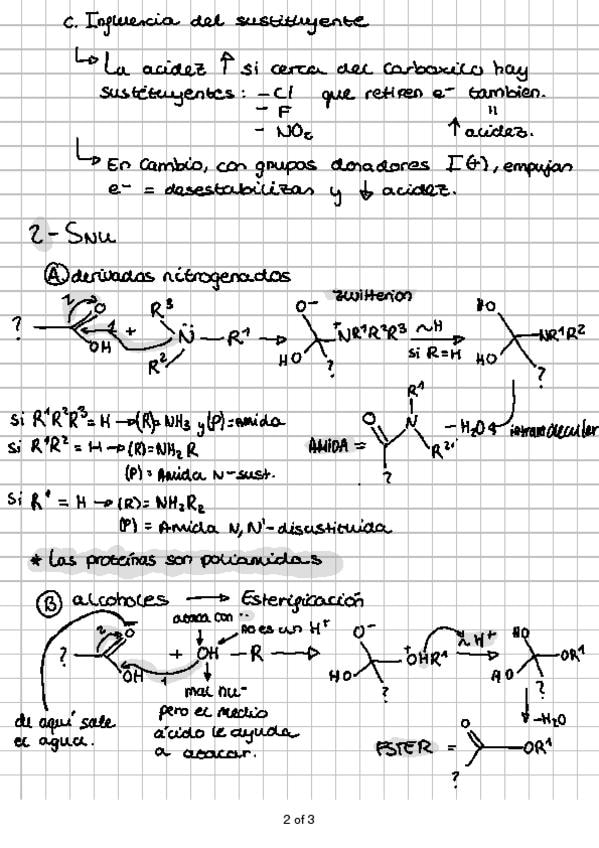 C. Influencia del sustituyente
↳ La acidez ↑ si cerca del carboxilo hay
sustituyentes: - Cl que retiren e- tambien.
- F
- NO2
↑ acidez.
↳ En cambio, con grupos donadores I(+), empujan
e- = desestabilizan y ↓ acidez.
2- SNU
A derivados nitrogenados
zwitterion
? 2 O 1 + OH R3 N̈ - R1 R2 → O- HO ? +NR1R2R3 ~H si R=H → HO HO NR1R2 ?
si R1R2R3 = H → (R) = NH3 y (P) = amida
si R1R2 = H → (R) = NH2R
(P) = Amida N-sust.
si R1 = H → (R) = NH2R2
(P) = Amida N, N'-disustituida
AMIDA = O R1 N R2 ?
- H2O intramolecular
* Las proteínas son poliamidas
B alcoholes → Esterificación
ataca con ··
no es un H+
? 2 O OH 1 + OH - R → O- HO ? +OHR1 ~H+ → HO HO OR1 ?
mal nu-
pero el medio
ácido le ayuda
a atacar.
de aquí sale
el agua.
-H2O
ESTER = O OR1 ?
2 of 3